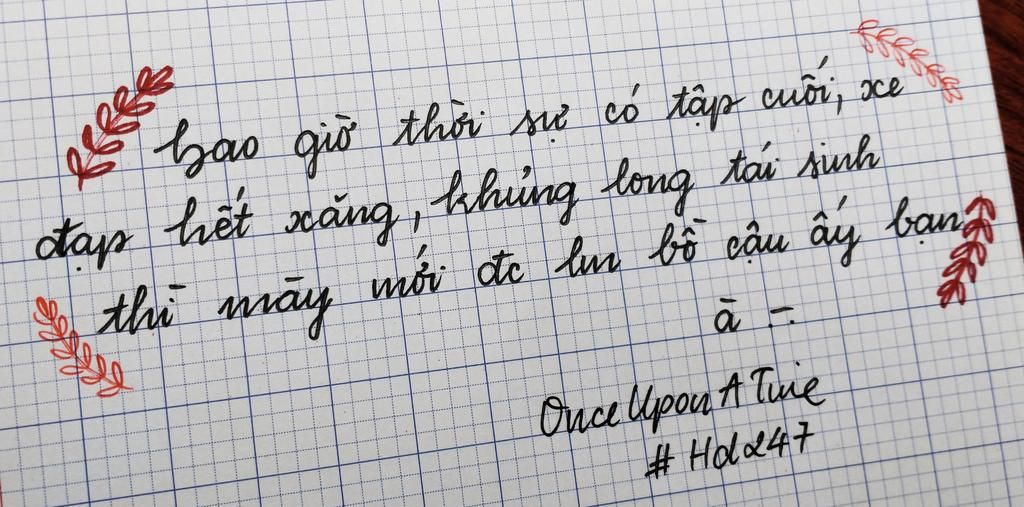 bao giờ thời sự có tập cuối, xe
đạp hết xăng, khủng long tái sinh
thì mày mới đc lm bồ cậu ấy bạn
à
OnceUponATwie
#Hd247